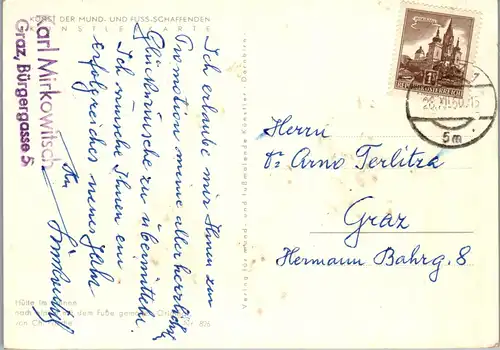 KUNST DER MUND- UND FUSS-SCHAFFENDEN
KÜNSTLERKARTE
Karl Mirkowitsch
Graz, Bürgergasse 5
Ich erlaube mir Ihnen zur
Promotion meine allerherzlichst
Glückwünsche zu übermitteln.
Ich wünsche Ihnen ein
erfolgreiches neues Jahr
Ihr
Hütte im
nach dem Fuße
von 826
Verlag für mund- und fußmalende Künstler, Dornbirn
REPUBLIK ÖSTERREICH
1
28.XII.60
5m
Herrn
Dr Arno Terlitza
Graz
Hermann Bahrg. 8